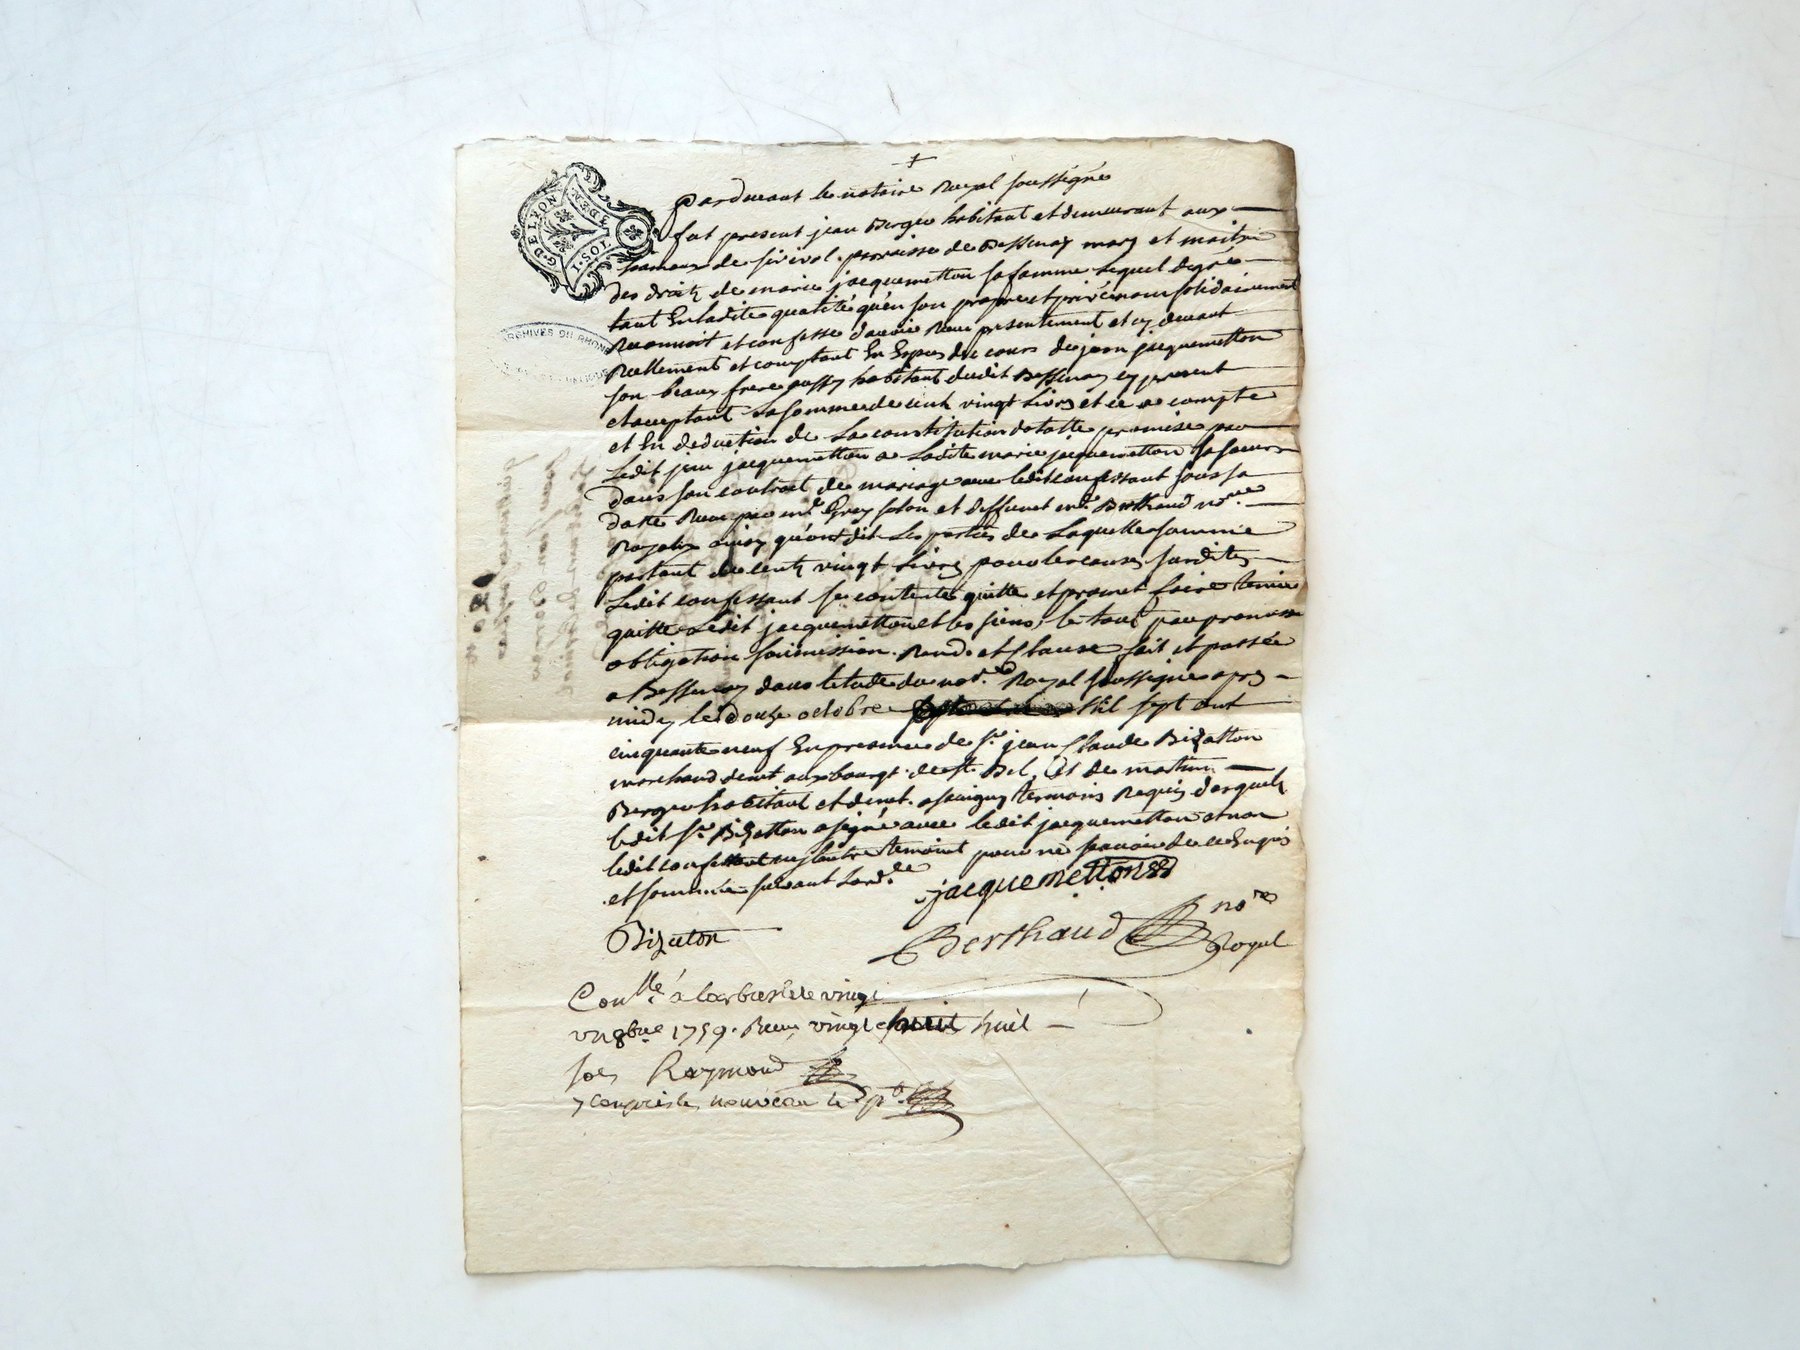 G. DE LYON
1. SOL
3. DEN.
ARCHIVES DU RHONE
pardevant le notaire Royal soussigné
fut present jean Berger habitant et demeurant aux
hameaux de sirivol parroisse de Bessenay mary et maitre
des droits de marie jacquemetton sa famme lequel degré
tant En ladite qualité qu'en son propre et privé nom solidairement
Reconnoit et confesse d'avoir Receu presentement et cy devant
Reellement et comptant En Espes du cours de jean jacquemetton
son beaux frere aussy habitant dudit Bessenay cy present
et acceptant la somme de cent vingt Livres et ce a compte
et En deduction de La constitution dotalle promise par
Ledit jean jacquemetton a Ladite marie jacquemetton sa soeur
dans son contrat de mariage avec ledit confessant sous sa
datte Receu par me Grey solon et deffunct me. Berthaud nores
Royaux ainsy qu'ont dit Les parties de Laquelle somme
partant de Cent vingt Livres pour les causes susdites
Ledit confessant se contente quitte et promet faire tenir
quitte Ledit jacquemetton et les siens, le tout par promesse
obligation soumission. Renد. et Clause fait et passée
a Bessenay dans l'etude du not.re Royal soussigné apres
midy le douze octobre mil sept cent
cinquante neuf En presence de sr. jean Claude Bizatton
marchand demt aux bourgt de st. Bel, Et de martin
Berger habitant et demt. a savigny temoins Requis desquels
ledit sr. Bizatton a signé avec ledit jacquemetton et non
ledit confessant ny lautre temoint pour ne scavoir de ce Enquis
et sommés suivant Lord.ce
jacquemetton
Bizaton
Berthaud nore
Royal
Conllé a larbresle le vingt
un 8bre 1759. Receu vingt huit
sols Raymond
y compris le nouveau